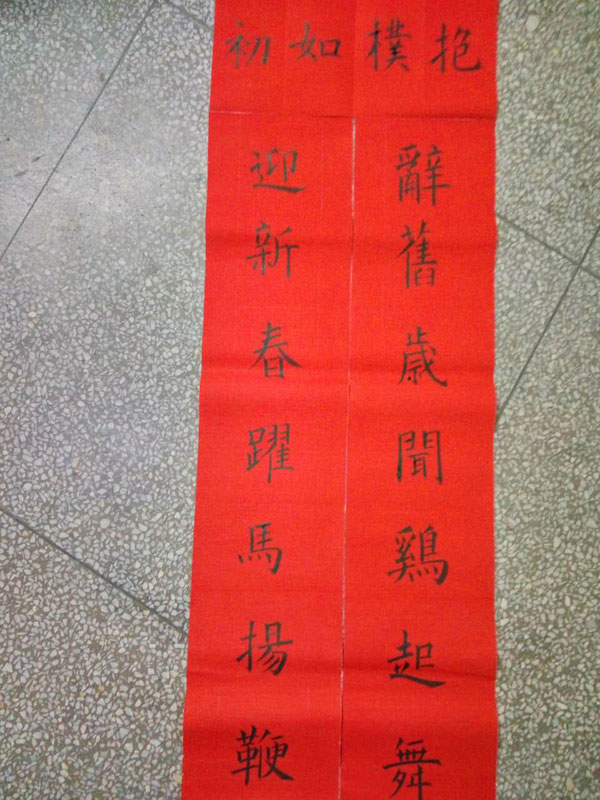 抱樸如初
辭舊歲聞鷄起舞
迎新春躍馬揚鞭